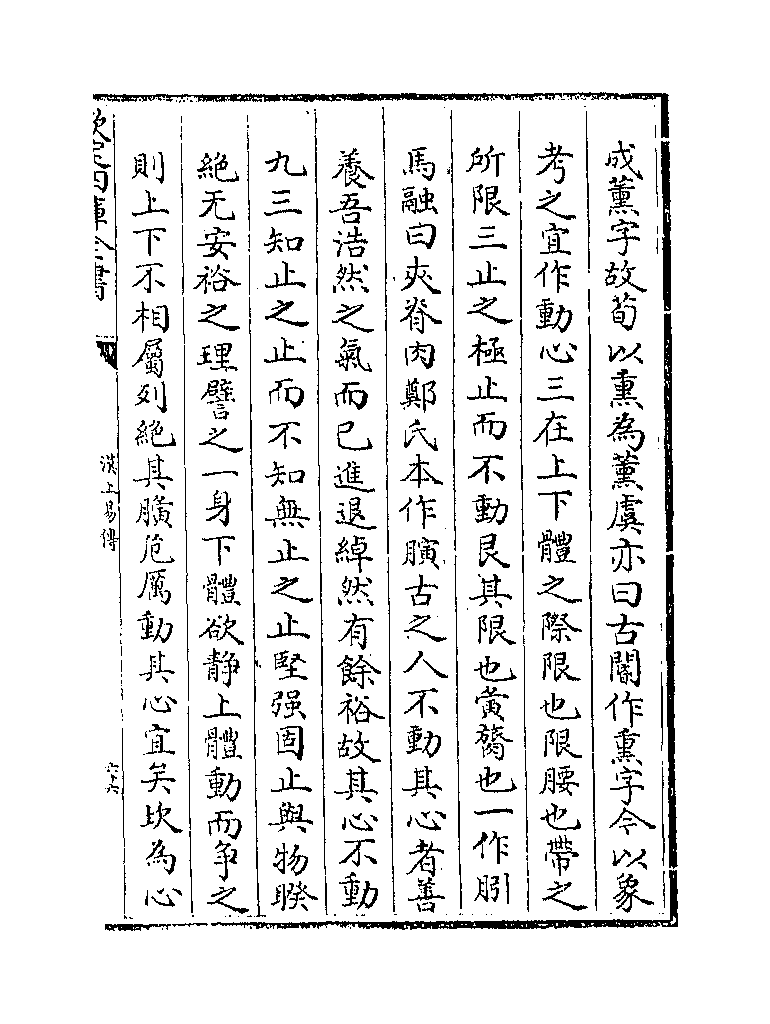 成薰字故荀以熏為薰虞亦曰古閽作熏字今以象
考之宜作動心三在上下體之際限也限腰也帶之
所限三止之極止而不動艮其限也夤膂也一作胂
馬融曰夾脊肉鄭氏本作䐠古之人不動其心者善
養吾浩然之氣而已進退綽然有餘裕故其心不動
九三知止之止而不知無止之止堅强固止與物睽
絶无安裕之理譬之一身下體欲静上體動而争之
則上下不相屬列絶其䐠危厲動其心宜矣坎為心
欽定四庫全書
漢上易傳
六十六